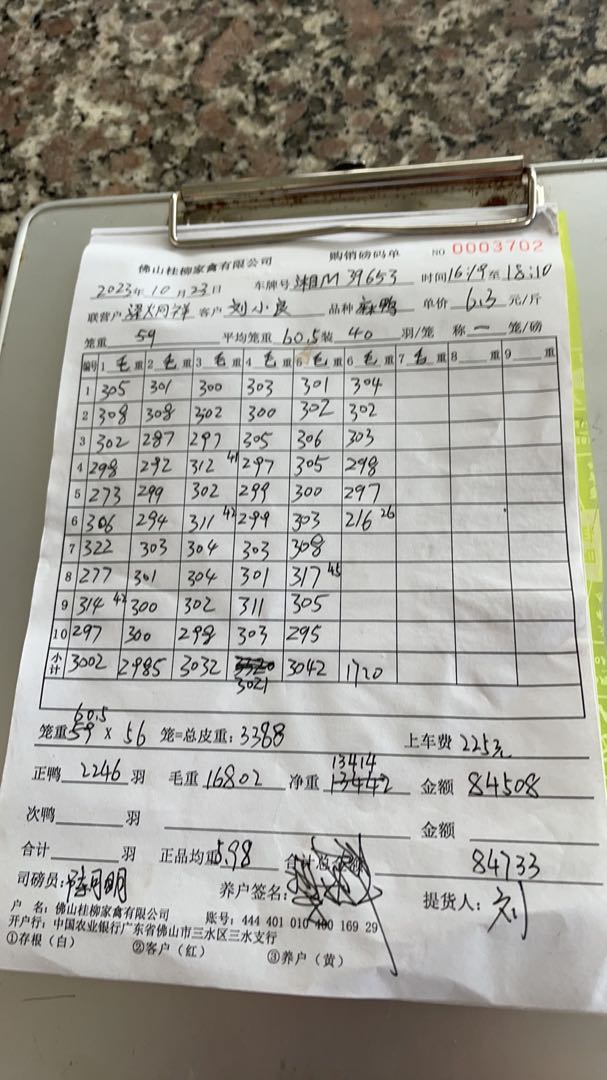 佛山桂柳家禽有限公司 购销磅码单 NO 0003702
2023年10月23日 车牌号 湘M 39653 时间16:19至18:10
联营户 客户 刘小良 品种 麻鸭 单价 6.3 元/斤
笼重 59 平均笼重 60.5 装 40 羽/笼 称 一 笼/磅
编号 1 毛 重 2 毛 重 3 毛 重 4 毛 重 5 毛 重 6 毛 重 7 毛 重 8 重 9 重
1 305 301 300 303 301 304
2 308 308 302 300 302 302
3 302 287 297 305 306 303
4 298 292 312 41 297 305 298
5 273 299 302 299 300 297
6 306 294 311 42 299 303 216 26
7 322 303 304 303 308
8 277 301 304 301 317 45
9 314 42 300 302 311 305
10 297 300 298 303 295
小计 3002 2985 3032 3320 3042 1720
3021
60.5
笼重 59 x 56 笼=总皮重: 3388 上车费 225元
13414
正鸭 2246 羽 毛重 16802 净重 13442 金额 84508
次鸭 羽 金额
合计 羽 正品均重 5.98 合计总金额 84733
司磅员: 养户签名: 提货人: 刘
户 名: 佛山桂柳家禽有限公司 账号: 444 401 010 400 169 29
开户行: 中国农业银行广东省佛山市三水区三水支行
①存根（白） ②客户（红） ③养户（黄）